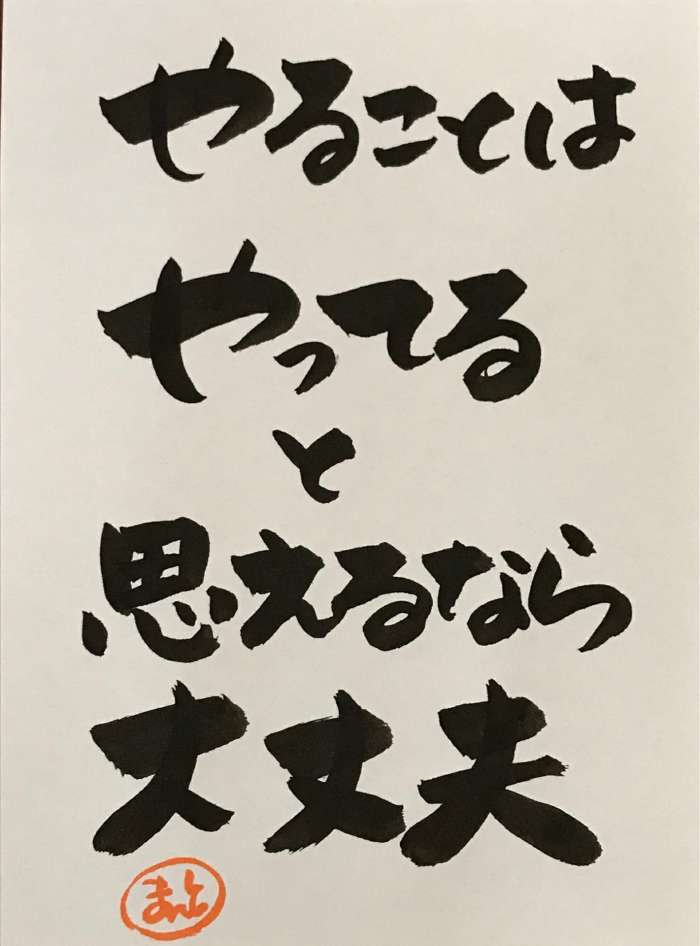 やることは
やってる
と
思えるなら
大丈夫